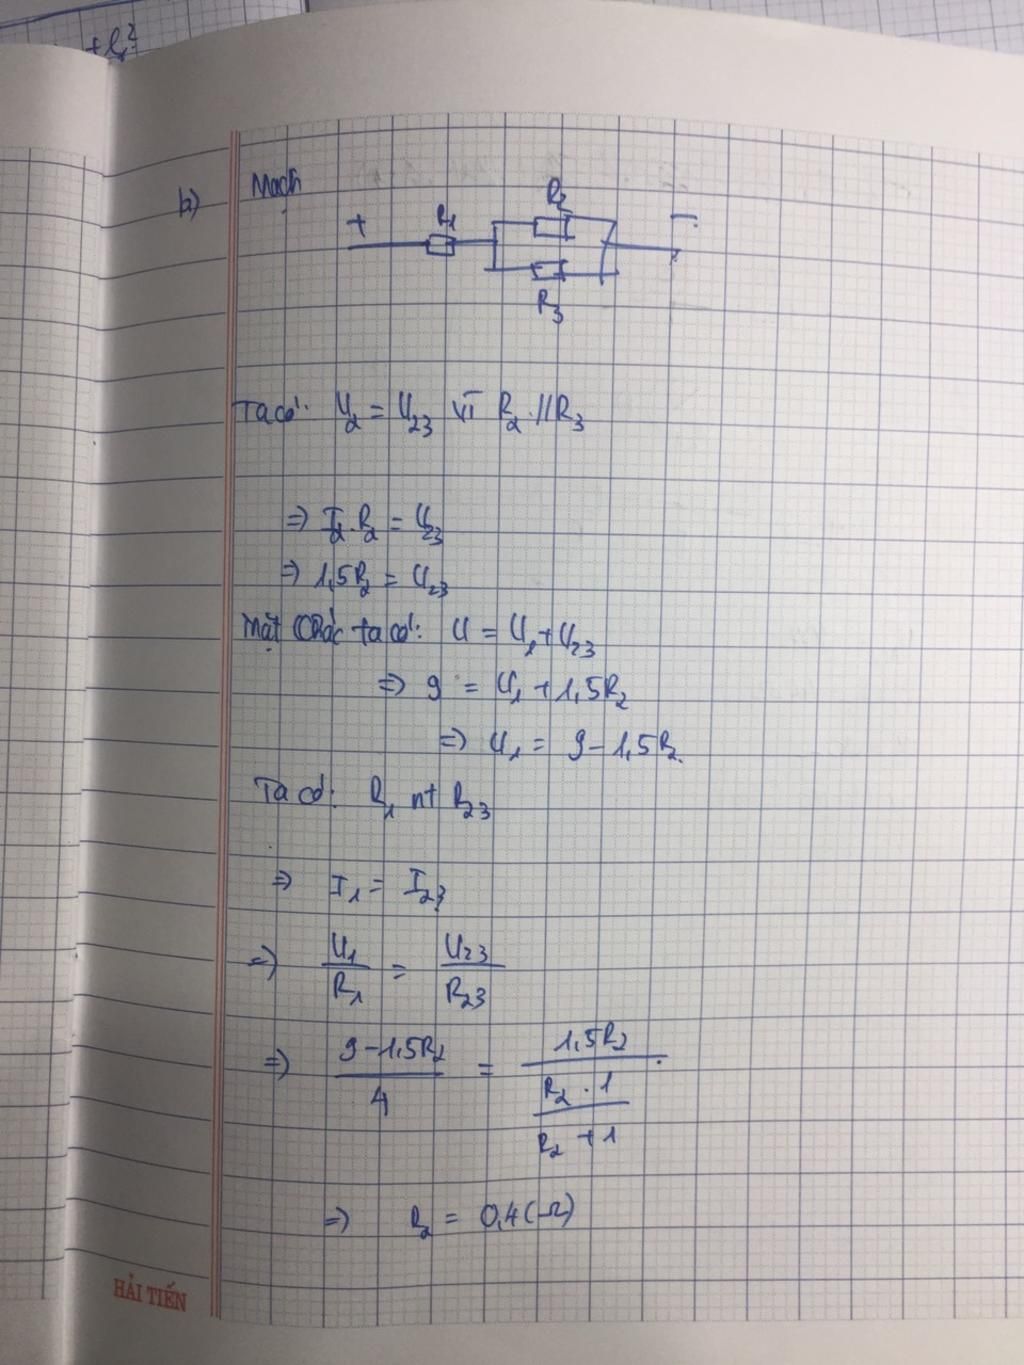 + l₁²
b) Mạch
R₂
+ R₁ -
R₃
Ta có: U₂ = U₂₃ vì R₂ // R₃
=> I₂.R₂ = U₂₃
=> 1,5R₂ = U₂₃
Mặt khác ta có: U = U₁ + U₂₃
=> 9 = U₁ + 1,5R₂
=> U₁ = 9 - 1,5R₂
Ta có: R₁ nt R₂₃
=> I₁ = I₂₃
=> U₁/R₁ = U₂₃/R₂₃
=> (9 - 1,5R₂)/4 = 1,5R₂/((R₂ . 1)/(R₂ + 1))
=> R₂ = 0,4 (Ω)
HẢI TIẾN